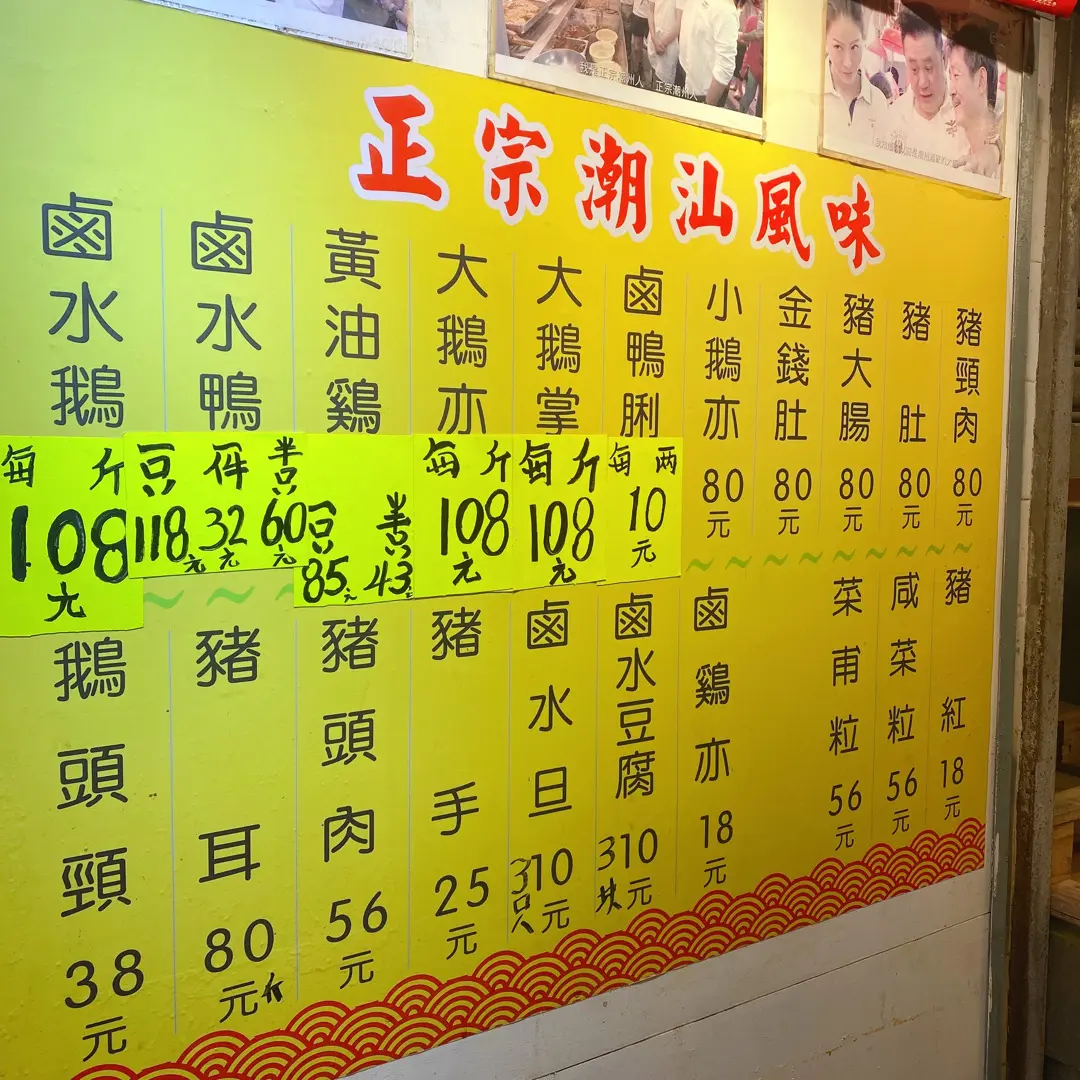 我哋正宗潮州人 正宗潮州人
正宗潮汕風味
鹵水鵝
每斤
108
元
鹵水鴨
隻 118元
件 32元
半隻 60元
黃油鷄
隻 85元
半隻 43元
大鵝亦
每斤
108
元
大鵝掌
每斤
108
元
鹵鴨脷
每両
10
元
小鵝亦
80
元
金錢肚
80
元
豬大腸
80
元
豬肚
80
元
豬頸肉
80
元
鵝頭頸
38
元
豬耳
80
元斤
豬頭肉
56
元
豬手
25
元
鹵水旦
3只10
元
鹵水豆腐
3塊10
元
鹵鷄亦
18
元
菜甫粒
56
元
咸菜粒
56
元
豬紅
18
元